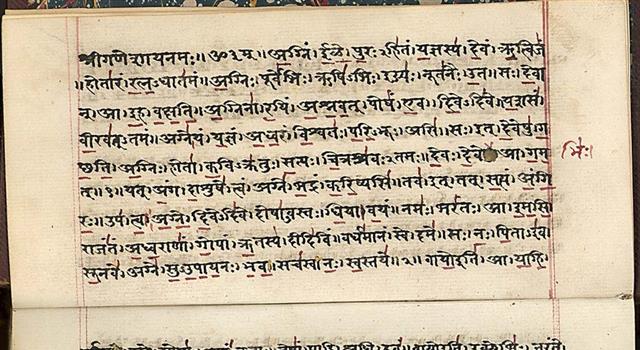 श्रीगणेशायनमः॥ॐ३म्॥अग्निं।ईळे।पुरःऽहितं।यज्ञस्य।देवं।ऋत्विजं
॥होतारं।रत्नऽधातमं॥अग्निः।पूर्वेभिः।ऋषिऽभिः।ईड्यः।नूतनैः।उत।सः।देवा
न्।आ।इह।वक्षति॥अग्निना।रयिं।अश्नवत्।पोषं।एव।दिवेऽदिवे।यशसं
वीरवत्ऽतमं॥अग्ने।यं।यज्ञं।अध्वरं।विश्वतः।परिऽभूः।असि।सः।इत्।देवेषु।ग
च्छति॥अग्निः।होता।कविऽक्रतुः।सत्यः।चित्रश्रवःऽतमः।देवः।देवे।आ।गम भिः।
त्॥१॥यत्।अंग।दाशुषे।त्वं।अग्ने।भद्रं।करिष्यसि।तव।इत्।तत्।सत्यं।अंगि
रः॥उप।त्वा।अग्ने।दिवेऽदिवे।दोषाऽवस्तः।धिया।वयं।नमः।भरंतः।आ।इमसि॥
राजंतं।अध्वराणां।गोपां।ऋतस्य।दीदिविं।वर्धमानं।स्वे।दमे॥सः।नः।पिताऽइव
सूनवे।अग्ने।सुऽउपायनः।भव।सचस्व।नः।स्वस्तये॥२॥वायोइति।आ।याहि।